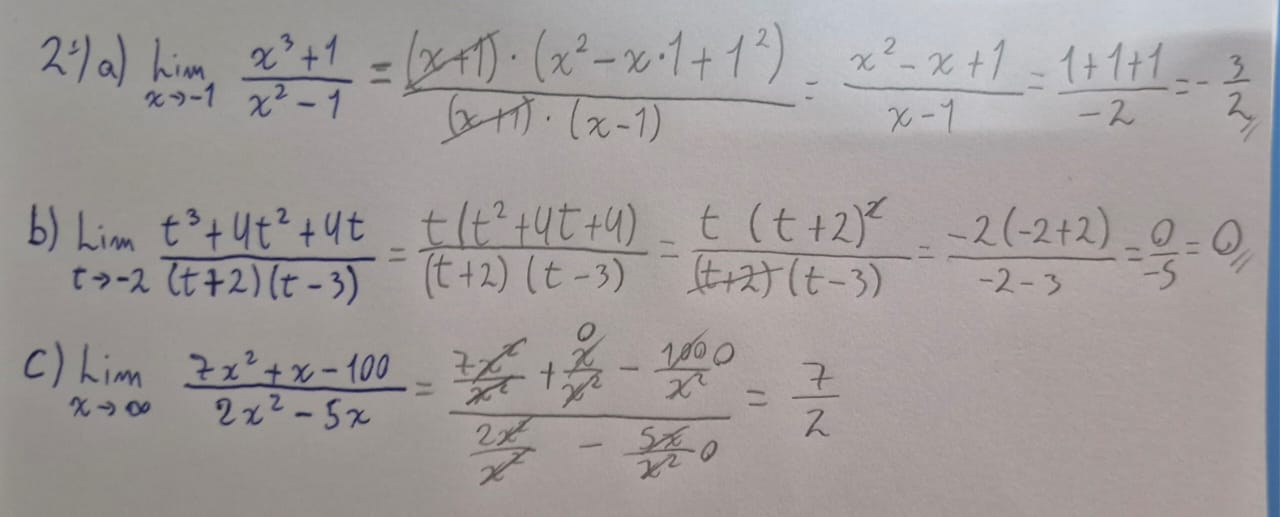 2º) a) Lim x→-1 x³+1 / x²-1 = (x+1)·(x²-x·1+1²) / (x+1)·(x-1) = x²-x+1 / x-1 = 1+1+1 / -2 = -3/2 //
b) Lim t→-2 t³+4t²+4t / (t+2)(t-3) = t(t²+4t+4) / (t+2)(t-3) = t(t+2)² / (t+2)(t-3) = -2(-2+2) / -2-3 = 0/-5 = 0 //
c) Lim x→∞ 7x²+x-100 / 2x²-5x = 7x²/x² + x/x² 0 - 100/x² 0 / 2x²/x² - 5x/x² 0 = 7/2